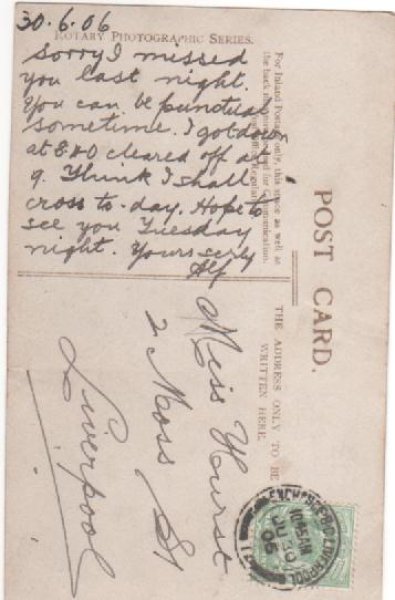 30.6.06
ROTARY PHOTOGRAPHIC SERIES.
Sorry I missed
you last night.
You can be punctual
sometime. I got down
at 8.40 cleared off at
9. Think I shall
cross to-day. Hope to
see you Tuesday
night. Yours scrly
Alf
For Inland Postage only, this space as well as
the back may now be used for Communication.
POST CARD.
THE ADDRESS ONLY TO BE
WRITTEN HERE.
Miss Hurst
2 Moss St
Liverpool
EXCHANGE B.O. LIVERPOOL
10.45AM
JU 30
06